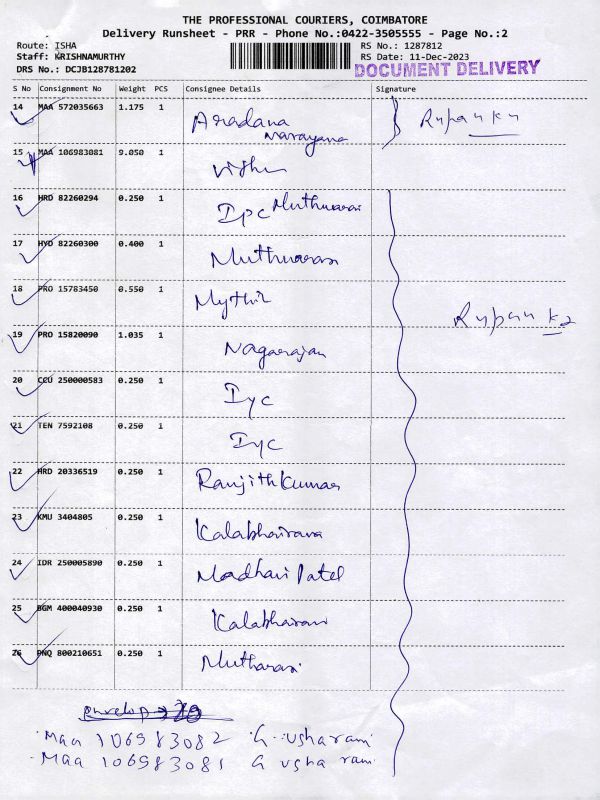 THE PROFESSIONAL COURIERS, COIMBATORE
Delivery Runsheet - PRR - Phone No.:0422-3505555 - Page No.:2
Route: ISHA RS No.: 1287812
Staff: KRISHNAMURTHY RS Date: 11-Dec-2023
DRS No.: DCJB128781202 DOCUMENT DELIVERY
S No Consignment No Weight PCS Consignee Details Signature
14 MAA 572035663 1.175 1 Aradana
Narayana
15 MAA 106983081 9.050 1
16 HRD 82260294 0.250 1 Ipc Muthuarasi
17 HYD 82260300 0.400 1 Muthuarasi
18 PRO 15783450 0.550 1 Mythil
19 PRO 15820090 1.035 1 Nagarajan
20 CCU 250000583 0.250 1 Iyc
21 TEN 7592108 0.250 1 Iyc
22 HRD 20336519 0.250 1 Ranjith Kumar
23 KMU 3404805 0.250 1 Kalabhairava
24 IDR 250005890 0.250 1 Madhavi Patel
25 BGM 400040930 0.250 1 Kalabhairavi
26 PNQ 800210651 0.250 1 Mutharasi
Maa 106983082 G. usha rani
Maa 106983081 G usha rani